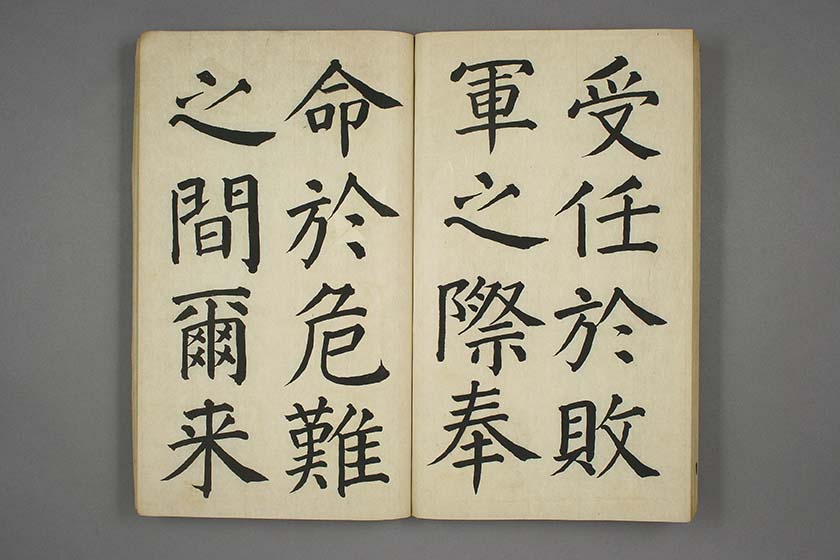 受任於敗
軍之際奉
命於危難
之間爾来